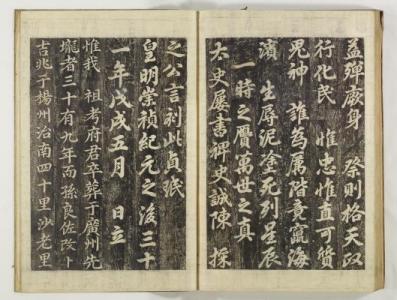 益殫厥身 祭則格天政
行化民 惟忠惟直可質
鬼神 誰為厲階竟竄海
濱 生辱泥塗死列星辰
一時之贗萬世之真
太史屢書稗史誠陳 採
之公言刻此貞珉
皇明崇禎紀元之後三十
一年戊戌五月 日立
惟我 祖考府君卒葬于廣州先
壠者三十有九年而孫良佐改卜
吉兆于楊州治南四十里沙老里